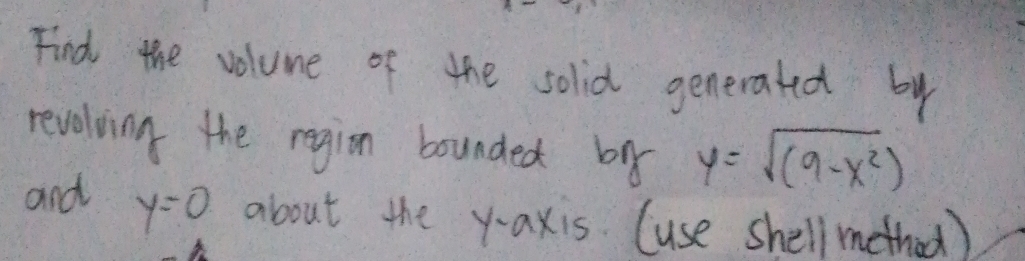 Find the volume of the solid generated by
revolving the region bounded by y = √(9-x²)
and y=0 about the y-axis. (use shell method)